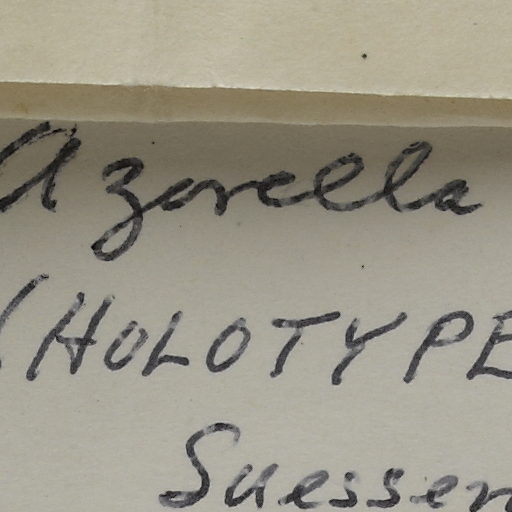 Azorella
(HOLOTYPE
Suessen